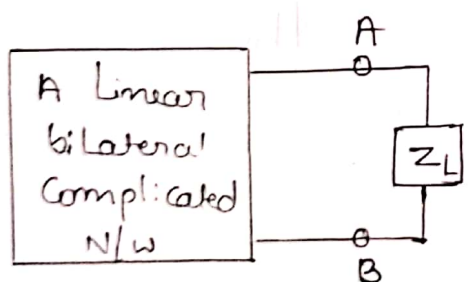 A
A Linear
bilateral
Complicated
N/W
ZL
B